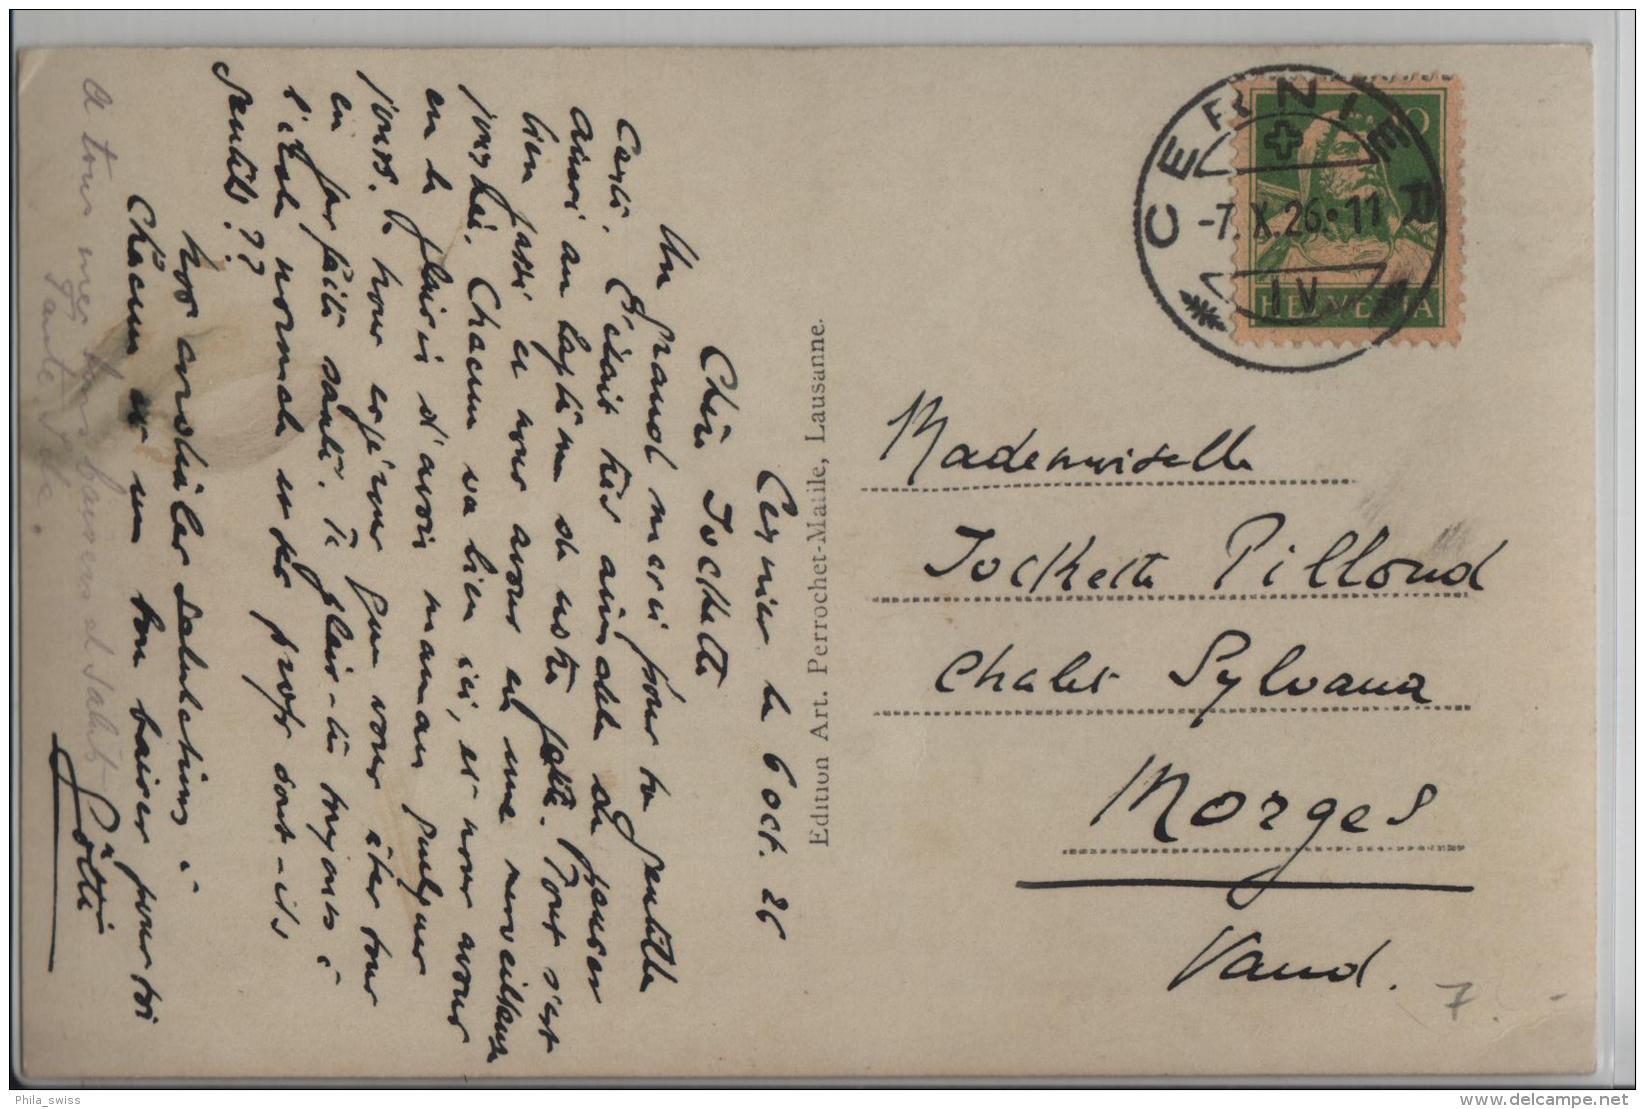 Cernier le 6 oct. 26
Chère Jockette
Un grand merci pour ta gentille
carte. C'était très aimable de penser
ainsi au baptême de notre petite. Tout s'est
bien passé et nous avons eu une merveilleuse
journée. Chacun va bien ici, et nous avons
eu le plaisir d'avoir maman quelques
jours. Je pense que vous êtes tous
en parfaite santé. Te plais-tu toujours à
l'école normale et tes profs sont-ils
gentils ??
Nos cordiales salutations à
chacun et un bon baiser pour toi
Götti
A tous mes bons baisers et saluts
Tante
Edition Art. Perrochet-Matile, Lausanne.
CERNIER
-7.X.26.-11
IV
HELVETIA
Mademoiselle
Jockette Pilloud
Chalet Sylvana
Morges
Vaud.
7.-
Phila_swiss
www.delcampe.net